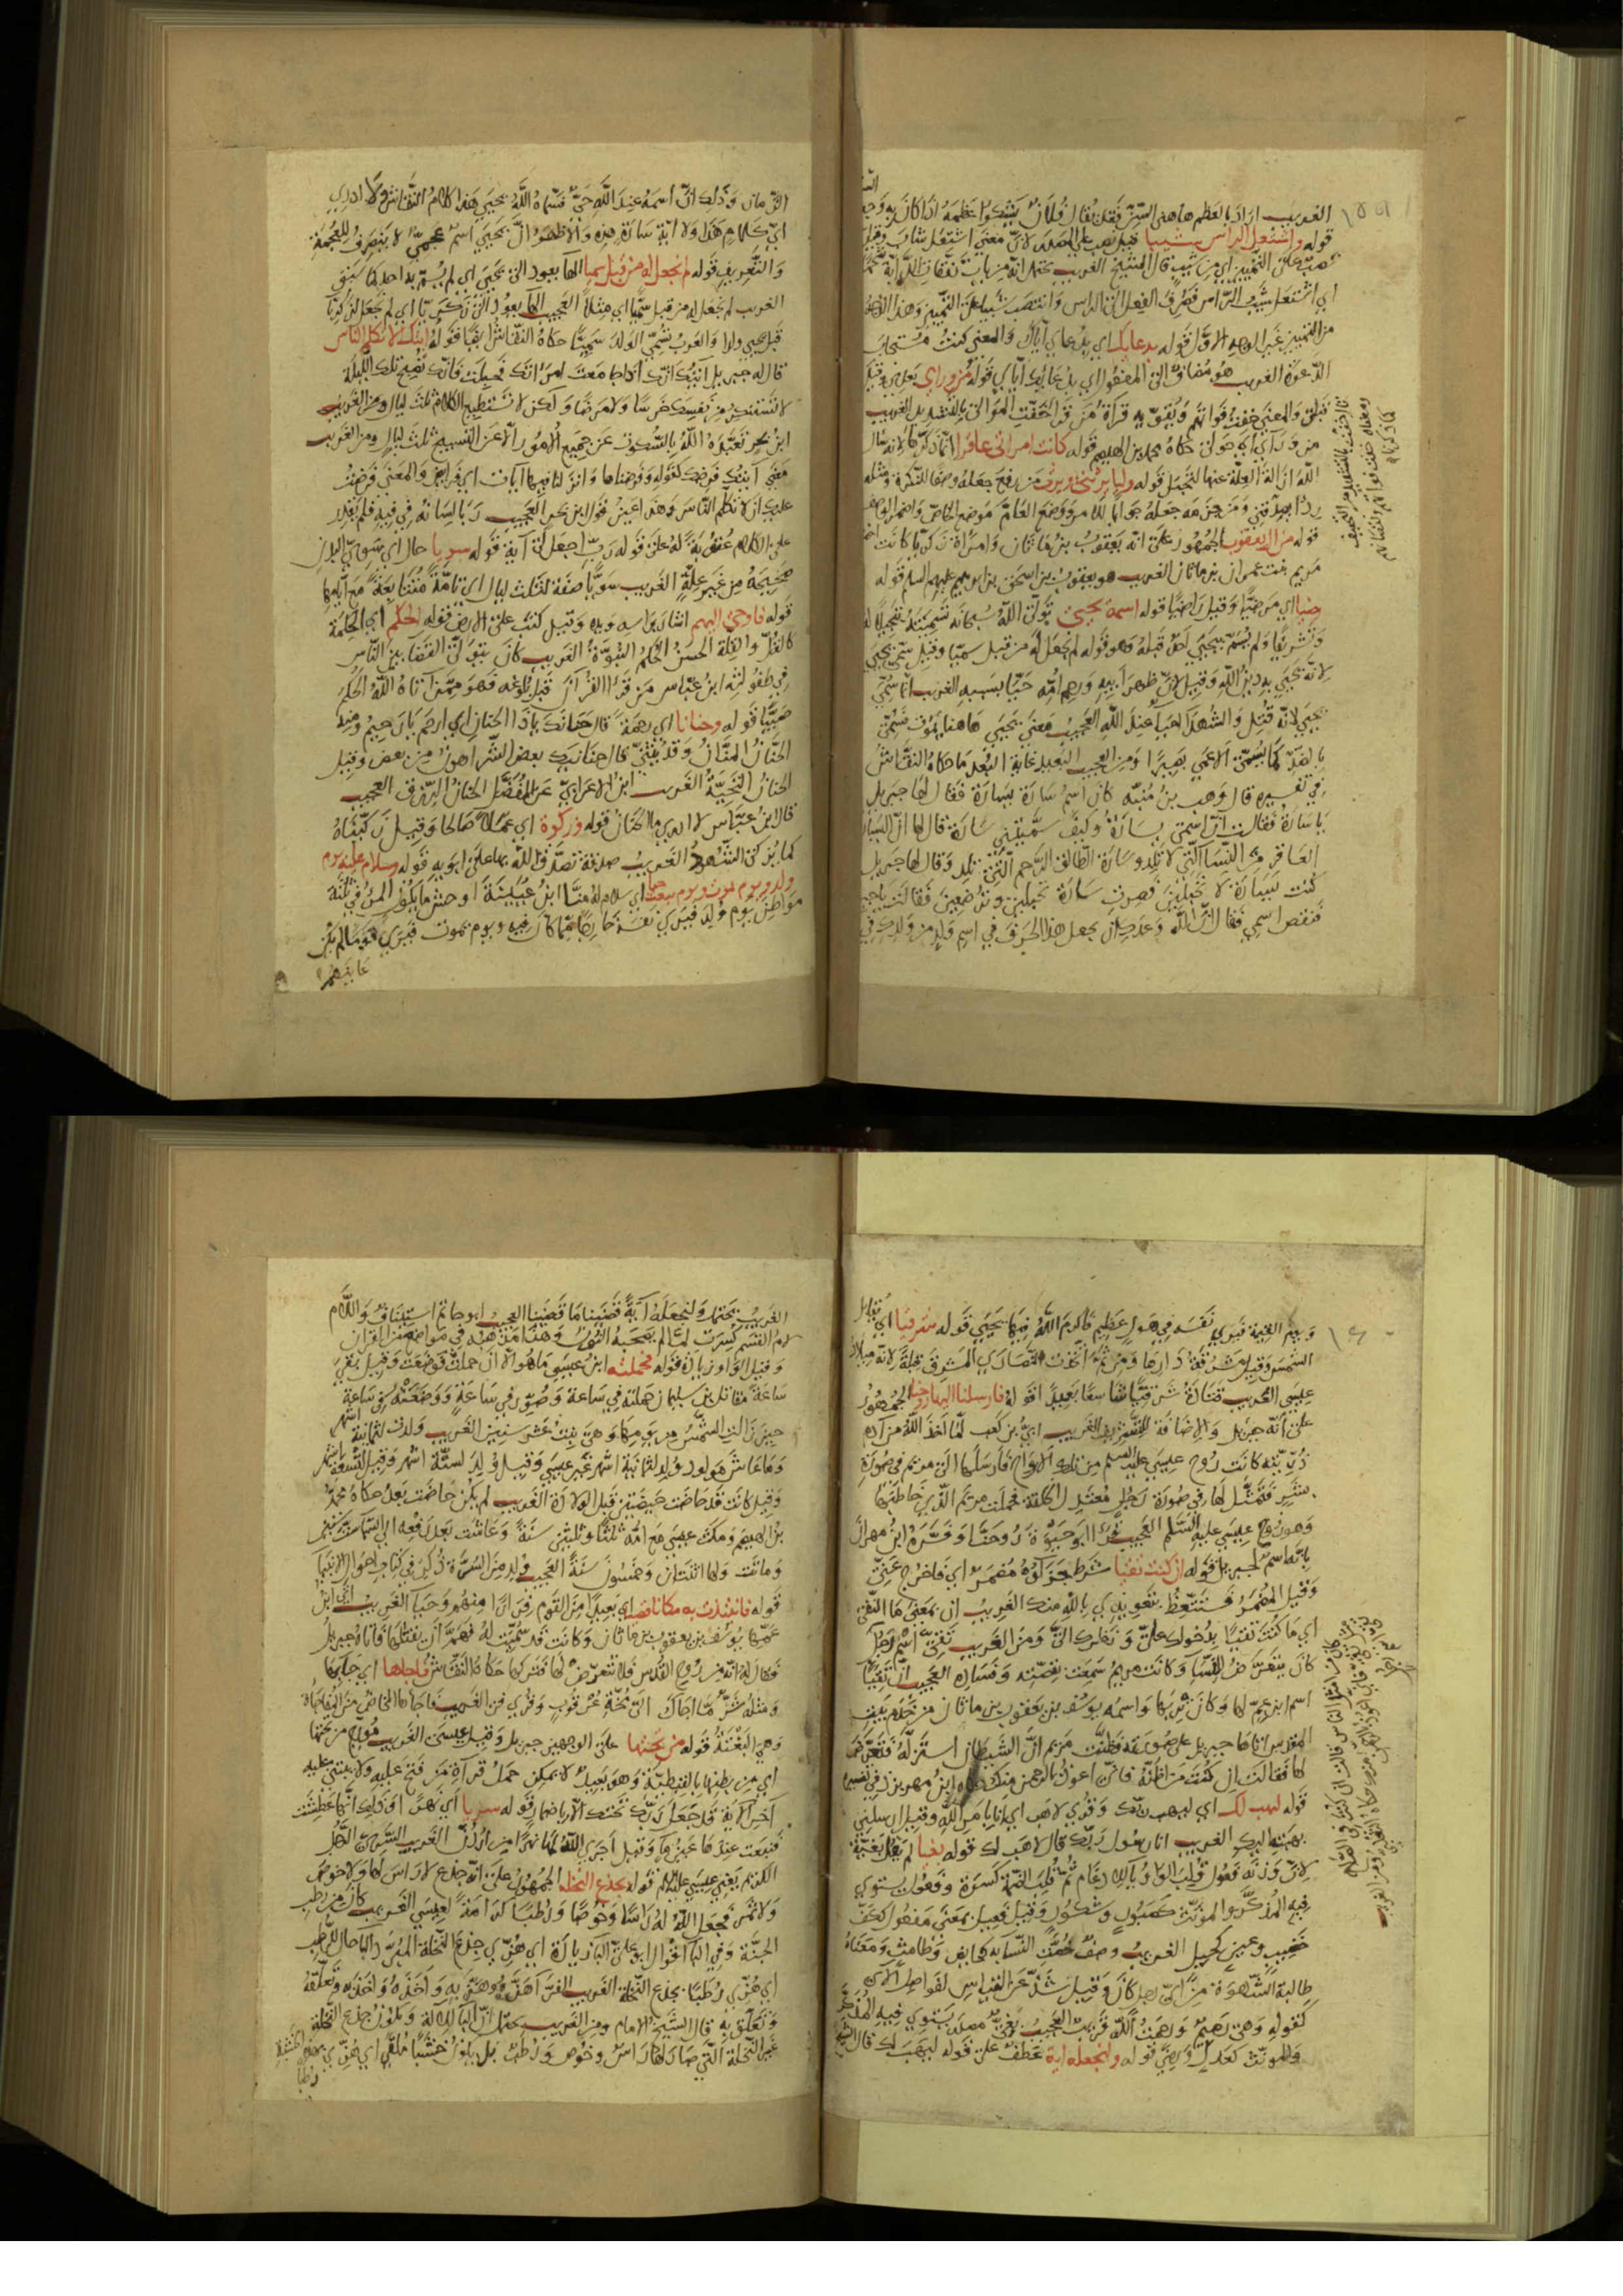 الغريب اراد بالعظم هاهنا السّنّ فقد يقال فلان يشكوا عظمه اذا كان به وجع
قوله واشتعل الراس شيبا قيل نصب على المصدر لانّ معنى اشتعل شاب وقيل
نصب على التمييز اي من شيب قال الشيخ الغريب يحتمل انّه من باب
اي اشتعل شيب الرّاس فصرف الفعل الى الراس وانتصب شيبا على التمييز وهذا
من التمييز غير الوجه الاوّل قوله بدعايك اي بدعاي ايّاك والمعنى كنت مستجاب
الدّعوة الغريب هو مضاف الى المفعول اي بدعايك ايّاي قوله من وراي
قبلي والمعنى خفت فواتهم ويقوّيه قراة من قرا خفّت الموالي بالتشديد الغريب
من وراي اي حولي حكاه محمد بن الهيصم قوله كانت امراتي عاقرا انّما ذكر لانه سال
الله ازالة العلّة عنها لتحبل قوله وليا يرثني ويرث من رفع جعله وصفا للنّكرة ومثله
ردءا يصدّقني ومن جزمه جعله جوابا للامر ووضع العامّ موضع الخاصّ
قوله من ال يعقوب الجمهور على انّه يعقوب بن ماثان وامراة زكريا كانت اخت
مريم بنت عمران بن ماثان الغريب هو يعقوب بن اسحق بن ابرهيم عليهم السلم قوله
رضيا اي مرضيّا وقيل راضيا قوله اسمه يحيى تولّى الله سبحانه تسميته
وتشريفا ولم يسمّ بيحيى احد قبله وهو قوله لم نجعل له من قبل سميّا وقيل سمّي يحيى
لانّه يحيي به دين الله وقيل لانّ ظهر ابيه ورحم امّه حيّا بسببه الغريب انّما سمّي
يحيى لانّه قتل والشهداء احيا عند الله العجيب معنى يحيى هاهنا يموت فسمّي
بالضدّ كما يسمّى الاعمى بصيرا ومن العجيب البعيد غاية البعد ما حكاه النقّاش
في تفسيره قال وهب بن منبّه كان اسم سارة يسارة فقال لها جبريل
يا سارة فقالت انّ اسمي يسارة وكيف سمّيتني سارة قال لها انّ اليسارة
العاقر من النّسا الّتي لا تلد وسارة الطالق الرّحم الّتي تلد وقال لها جبريل
كنت يسارة لا تحبلين فصرت سارة تحبلين وترضعين فقالت يا جبريل
فنقص اسمي فقال انّ الله وعدك ان يجعل هذا الحرف في اسم ولد من ولدك في
الزمان وذلك انّ اسمه عند الله حيّ فسمّاه الله يحيى هذا كلام النقّاش ولا ادري
ايّ كلام هذا ولا ايّة سارة هذه والاظهر انّ يحيى اسم عجميّ لا ينصرف للعجمة
والتّعريف قوله لم نجعل له من قبل سميا الها يعود الى يحيى اي لم يسمّ به احد كما سبق
الغريب لم نجعل له من قبل سميّا اي مثلا العجيب الها يعود الى زكريّا اي لم نجعل لزكريّا
قبل يحيى ولدا والعرب تسمّي الولد سميّا حكاه النقّاش ايضا قوله ايتك الا تكلم الناس
قال له جبريل آيتك انّك اذا جامعت امراتك فحبلت فانّك تصبح تلك اللّيلة
لا تستنكر من نفسك خرسا ولا مرضا ولكن لا تستطيع الكلام ثلث ليال ومن الغريب
ابن بحر تعبّده الله بالسّكوت عن جميع الامور الّا عن التسبيح ثلث ليال ومن الغريب
معنى آيتك فرضك كقوله وفرضناها وانزلنا فيها ايات اي فرايض والمعنى فرضت
عليك ان لا تكلّم النّاس وهذا عين قول ابن بحر العجيب ربا لسانه في فيه فلم يقدر
على الكلام عقوبة له على قوله ربّ اجعل لي آية قوله سويا حال اي سويّ البدن
صحيحه من غير علّة الغريب سويّا صفة لثلث ليال اي تامّة متتابعة مع ايّامها
قوله فاوحى اليهم اشار براسه ويده وقيل كتب على الارض قوله الحكم اي الحكمة
كالقلّ والقلّة الحسن الحكم النبوّة الغريب كان يتولّى القضا بين النّاس
في طفوليّته ابن عبّاس من قرا القران قبل بلوغه فهو ممّن آتاه الله الحكم
صبيّا قوله وحنانا اي رحمة قال حنانك يا ذا الحنان اي ارحم يا رحيم ومنه
الحنّان المنّان وقد يثنّى قال حنانيك بعض الشّر اهون من بعض وقيل
الحنان المحبّة الغريب ابن الاعرابيّ عن المفضّل الحنان الرّزق العجيب
قال ابن عبّاس لا ادري ما الحنان قوله وزكوة اي عملا صالحا وقيل زكّيناه
كما يزكى الشهود الغريب صدقة تصدّق الله بها على ابويه قوله وسلام عليه يوم
ولد ويوم يموت ويوم يبعث حيا اي سلام له منّا ابن عيينة اوحش ما يكون المرء في ثلثة
مواطن يوم ولد فيرى نفسه خارجا ممّا كان فيه ويوم يموت فيرى قوما لم يكن
عاينهم
ويوم القيمة فيرى نفسه في هول عظيم فاكرم الله فيها يحيى قوله شرقيا اي
الشمس وقيل مشرقة دارها ومن ثمّ اتّخذت النّصارى المشرق قبلة لانّه ميلاد
عيسى الغريب قتادة شرقيّا شاسعا بعيدا قوله فارسلنا اليها روحنا الجمهور
على انّه جبريل والاضافة للتشريف الغريب ابيّ بن كعب لمّا اخذ الله من آدم
ذرّيّته كانت روح عيسى عليه السلم من تلك الارواح فارسلها الى مريم في صورة
بشر فتمثّل لها في صورة رجل معتدل الخلقة فحملت مريم الّذي خاطبها
وهو روح عيسى عليه السّلم العجيب قرا ابو حيوة روحنّا وفسّره ابن مهران
بانّه اسم لجبريل قوله ان كنت تقيا شرط جزاؤه مضمر اي فاخرج عنّي
وقيل المضمر فستتّعظ بتعويذي بالله منك الغريب ان بمعنى ما النّفي
اي ما كنت تقيّا بدخولك عليّ ونظرك اليّ ومن الغريب تقيّ اسم رجل
كان يتعرّض للنّسا وكانت مريم سمعت بقصّته وفساده العجيب انّ تقيّا
اسم ابن عمّ لها وكان واسمه يوسف بن يعقوب بن ماثان من خدم بيت
المقدس اتاها جبريل على صورته فظنّت مريم انّ الشيطان استزلّه
لها فقالت ان كنت من اظنّه فانّي اعوذ بالرحمن منك حكاه ابن مهريزد في تفسيره
قوله ليهب لك اي ليهب ربّك وقرى لاهب اي انا بامر الله وقيل ارسلني
بهبته اليك الغريب انا رسول ربّك قال لاهب لك قوله بغيا لم يقل بغيّة
لانّ وزنه فعول قلبت الواو يا للادغام ثمّ قلبت الضّمة كسرة وفعول يستوي
فيه المذكّر والمؤنّث كصبور وشكور وقيل فعيل بمعنى مفعول ككفّ
خضيب وعين كحيل الغريب وصف خصّت النّسا به كحايض وطامث ومعناه
طالبة الشّهوة من ايّ رجل كان وقيل شذّ عن القياس لفواصل الآي
كقوله وهي رميم ورحمت الله قريب العجيب بغيّ مصدر يستوي فيه المذكّر
والمونّث كعدل ورضى قوله ولنجعله اية عطف على قوله ليهب لك قال الشيخ
الغريب يحتمل ولنجعله آية قضينا ما قضينا العجيب ابو حاتم استيناف واللّام
لام القسم كسرت لمّا لم يصحبه النّون وهذا مذهبه في مواضع من القران
وقيل الواو زيادة قوله فحملته ابن عيسى ما هو الّا ان حملت فوضعت وقيل بعد
ساعة مقاتل بن سليمان حملته في ساعة وصوّر في ساعة ووضعته في ساعة
حين زالت الشمس من يومها وهي بنت عشر سنين الغريب ولدت لثمانية اشهر
وما عاش مولود يولد لثمانية اشهر غير عيسى وقيل ولد لستّة اشهر وقيل لتسعة اشهر
وقيل كانت قد حاضت حيضتين قبل الولادة الغريب لم يكن حاضت بعد حكاه محمد
بن الهيصم ومكث عيسى مع امّه ثلثا وثلثين سنة وعاشت بعد رفعه الى السّما ستّ سنين
وماتت ولها اثنتان وخمسون سنة العجيب ولد من السّرّة ذكر في كتاب احوال الانبيا
قوله فانتبذت به مكانا قصيا اي بعيدا من القوم فرارا منهم وحيا الغريب انّ ابن
عمّها يوسف بن يعقوب بن ماثان وكانت قد سمّيت له فهمّ ان يقتلها فاتاه جبريل
فقال له انّه من روح القدس فلا تتعرّض لها فتركها حكاه النقّاش فاجاها اي جابها
ومثله شرّ ما اجاك الى مخّة عرقوب وقرى في الغريب فاجاها المخاض من المفاجاة
وهي البغتة قوله من تحتها على الوجهين جبريل وقيل عيسى الغريب من تحتها
اي من بطنها بالقبطيّة وهو بعيد لا يمكن حمل قراة من فتح عليه ولا يبتنى عليه
آخر الآية قد جعل ربّك تحتك الّا باضمار قوله سريا اي نهرا وذلك انّها عطشت
فنبعت عندها عين ما وقيل اجرى الله لها نهرا من اردن الغريب السّريّ الرّجل
الكريم يعني عيسى عليه السلم قوله بجذع النخلة الجمهور على انّه جذع لا راس لها ولا خوص
ولا ثمر فجعل الله له راسا وخوصا ورطبا كرامة لعيسى الغريب كان من رطب
الجنّة وفي البا اقوال ابو عليّ البا زيادة اي هزّي جذع النّخلة المبرّد البا حال للرّطب
اي هزّي رطبا بجذع النّخلة الغريب الفرّا هزّه وهزّ به واخذه واخذ به وتعلّقه
وتعلّق به قال الشيخ الامام ومن الغريب يحتمل انّ البا للآلة ويكون جذع النخلة
غير النّخلة التي صار لها راس وخوص ورطب بل يكون خشبا ملقى اي هزّي بهذه الخشبة
رطبا